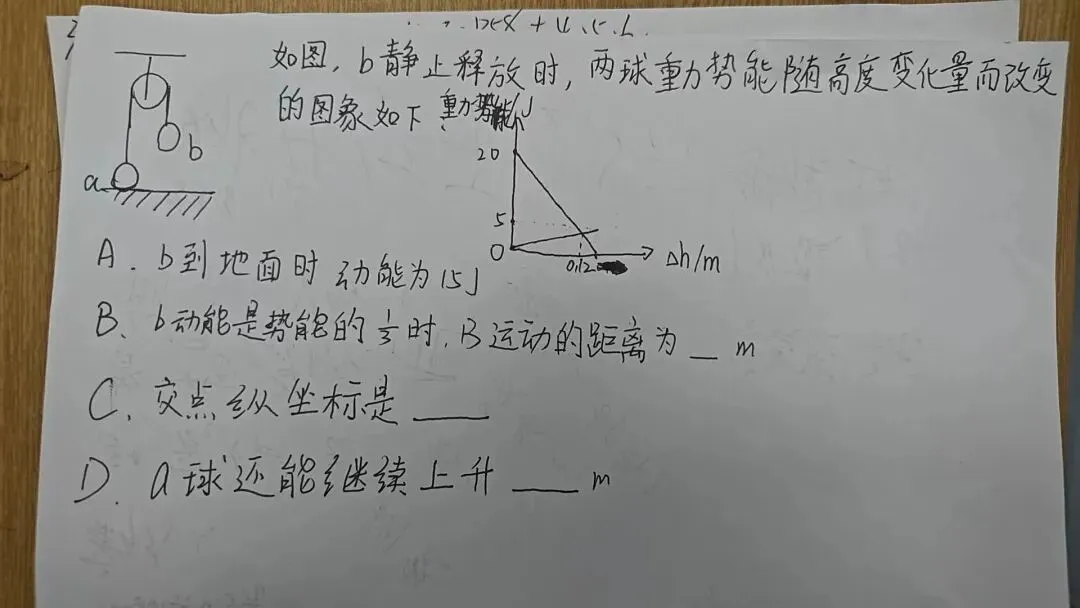 如图，b静止释放时，两球重力势能随高度变化量而改变
的图象如下：重力势能/J
20
5
O
0.12
Δh/m
a
b
A. b到地面时 动能为15J
B. b动能是势能的 1/3 时，B运动的距离为 _ m
C. 交点纵坐标是 ____
D. a球还能继续上升 ____ m